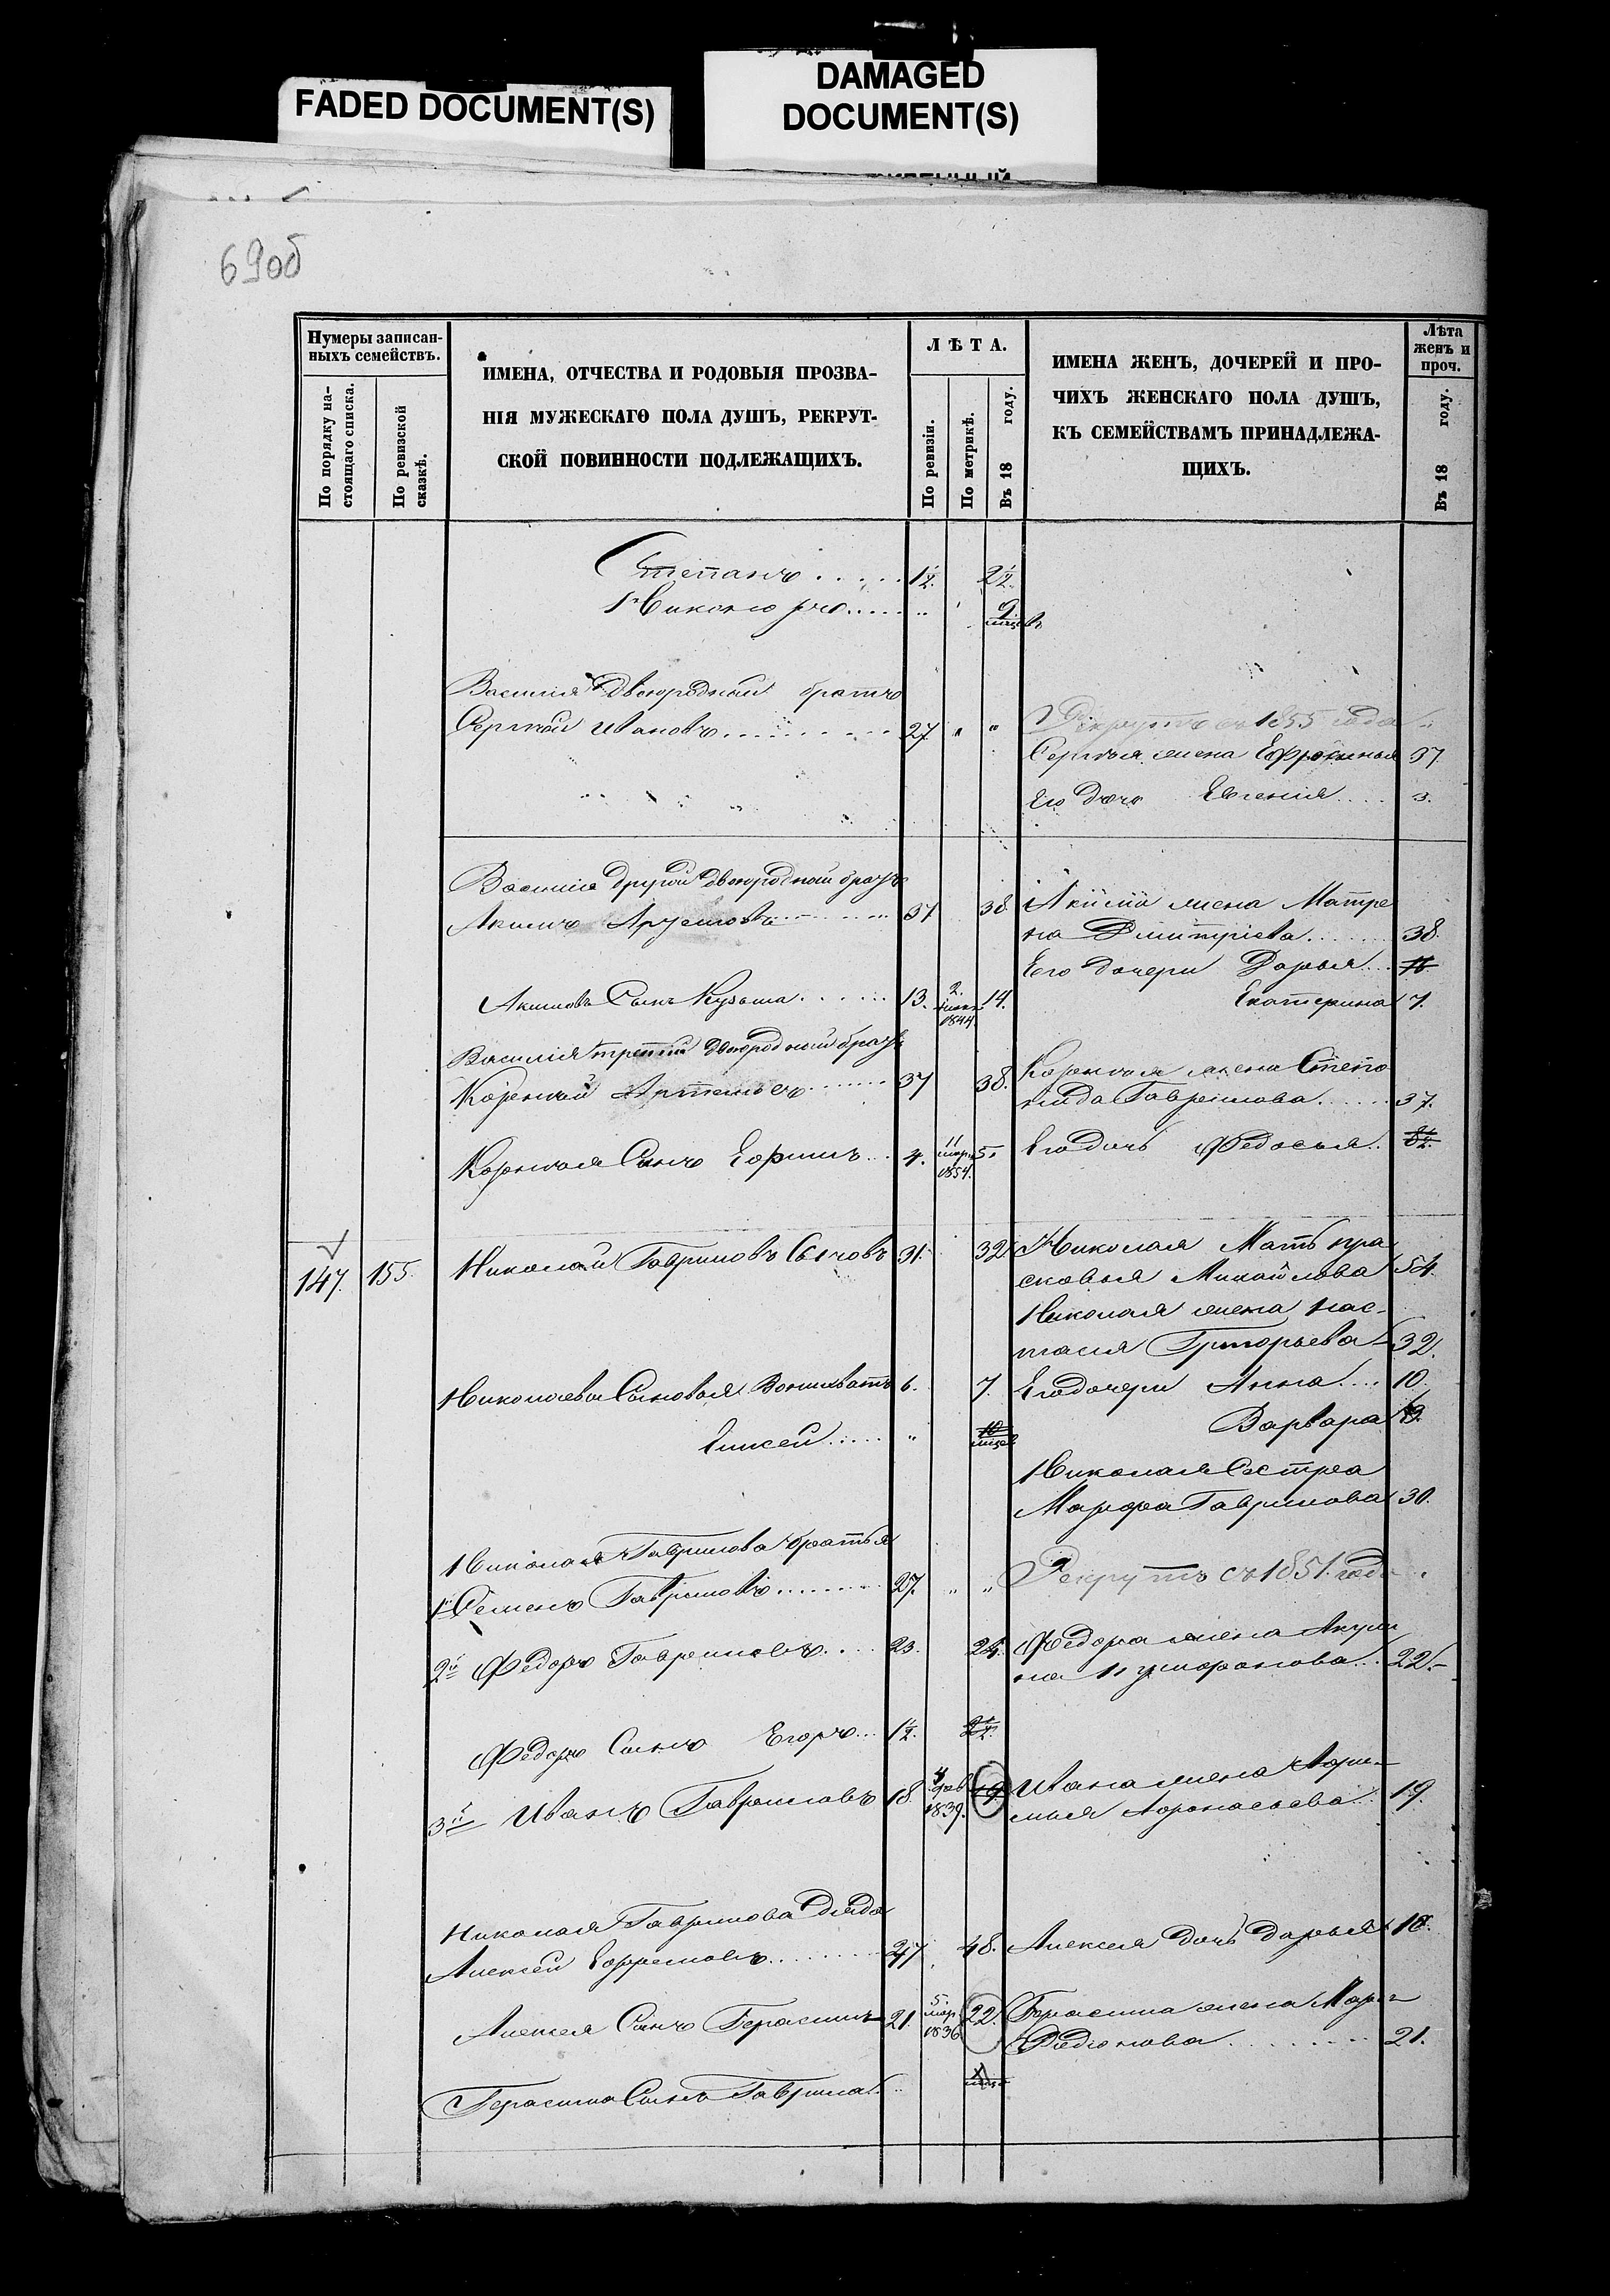 FADED DOCUMENT(S)
DAMAGED
DOCUMENT(S)
69об
Нумеры записан-
ныхъ семействъ.
По порядку на-
стоящаго списка.
По ревизской
сказкѣ.
ИМЕНА, ОТЧЕСТВА И РОДОВЫЯ ПРОЗВА-
НІЯ МУЖЕСКАГО ПОЛА ДУШЪ, РЕКРУТ-
СКОЙ ПОВИННОСТИ ПОДЛЕЖАЩИХЪ.
ЛѢТА.
По ревизіи.
По метрикѣ.
Въ 18 году.
ИМЕНА ЖЕНЪ, ДОЧЕРЕЙ И ПРО-
ЧИХЪ ЖЕНСКАГО ПОЛА ДУШЪ,
КЪ СЕМЕЙСТВАМЪ ПРИНАДЛЕЖА-
ЩИХЪ.
Лѣта
женъ и
проч.
Въ 18 году.
Степанъ 1½. 2½.
9
Василія двоюродный братъ
Сергѣй Ивановъ 27. " " Рекрутъ съ 1855 года
Сергѣя жена Ефросинья 37
Его дочь Евгенія 3.
Василія другой двоюродный братъ
Акимъ 37 38. Акима жена Матре
на Дмитріева 38.
Его дочери Дарья
Акимовъ Сынъ Кузьма 13. 2. 1844. 14. Екатерина 7.
Василія третій двоюродный братъ
Корнѣй 37 38. Корнѣя жена Степа
нида Гаврилова 37.
Корнѣя Сынъ Ефимъ 4. 11 мар. 1854. 5. Его дочь Федосья
147. 155. Николай Гавриловъ Сычовъ 31. 32. Николая Мать Пра
сковья Михайлова 54.
Николая жена Нас-
тасья Григорьева 32.
Николаевы Сыновья 6. 7. Его дочери Анна 10.
Елисей " Варвара
Николая Сестра
Марфа Гаврилова 30.
Николая Гаврилова братья
1й Семенъ Гавриловъ 27. " " Рекрутъ съ 1851. года
2й Федоръ Гавриловъ 23. 24. Федора жена Акули
на 22.
Федора Сынъ Егоръ 1½.
3й Иванъ Гавриловъ 18. 1839. 19. Ивана жена
Афонасьева 19.
Николая Гаврилова дядя
Алексей Ефремовъ 47 48. Алексея дочь Дарья 18.
Алексея Сынъ Герасимъ 21. 5. мар. 1836 22. Герасима жена Марья
Родіонова 21.
Герасима Сынъ Гаврила